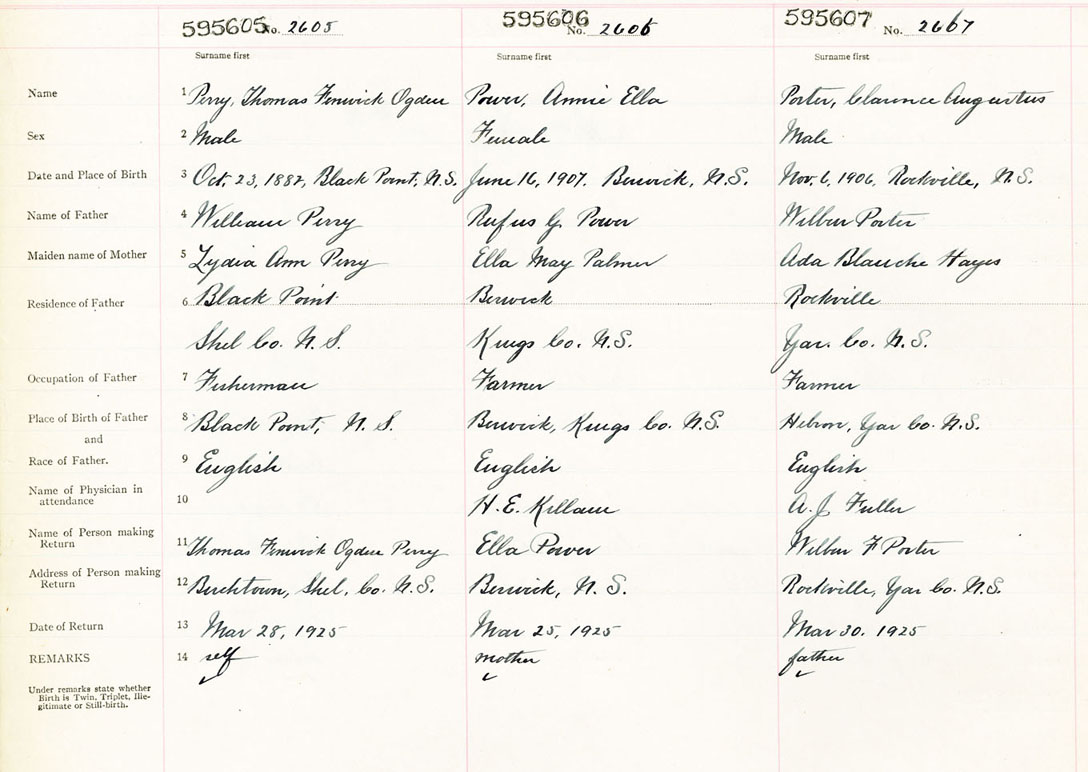 595605 No. 2605 595606 No. 2606 595607 No. 2607
Surname first Surname first Surname first
Name 1 Perry, Thomas Fenwick Ogden Power, Annie Ella Porter, Clarence Augustus
Sex 2 Male Female Male
Date and Place of Birth 3 Oct. 23, 1882, Black Point, N.S. June 16, 1907. Berwick, N.S. Nov. 6, 1906, Rockville, N.S.
Name of Father 4 William Perry Rufus G. Power Wilbur Porter
Maiden name of Mother 5 Lydia Ann Perry Ella May Palmer Ada Blanche Hayes
Residence of Father 6 Black Point Berwick Rockville
Shel Co. N.S. Kings Co. N.S. Yar. Co. N.S.
Occupation of Father 7 Fisherman Farmer Farmer
Place of Birth of Father 8 Black Point, N.S. Berwick, Kings Co. N.S. Hebron, Yar Co. N.S.
and
Race of Father. 9 English English English
Name of Physician in
attendance 10 H.E. Killam A.J. Fuller
Name of Person making
Return 11 Thomas Fenwick Ogden Perry Ella Power Wilbur F Porter
Address of Person making
Return 12 Birchtown, Shel. Co. N.S. Berwick, N.S. Rockville, Yar Co. N.S.
Date of Return 13 Mar 28, 1925 Mar 25, 1925 Mar 30. 1925
REMARKS 14 self mother father
Under remarks state whether
Birth is Twin, Triplet, Ille-
gitimate or Still-birth.